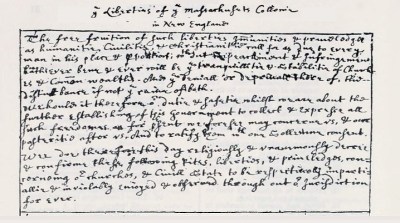 yͤ Liberties of yͤ Massachusets Collonie
in New England
The free fruition of such liberties Immunities & priveledges
as humanitie, Civilitie, & Christianitie call for as due to every
man in his place & proportion without impeachment & Infringement
hath ever bene & ever will be yͤ tranquillitie & Stabilitie of Churches
& Comon wealths. And yͤ deniall or deprivall thereof, the
disturbance if not yͤ ruine of both.
We hould it therefore oͬ dutie & safetie whilst we are about the
further establishing of this Government to collect & expresse all
such freedomes as for present we foresee may concerne us, & oͬ
posteritie after us, And to ratify them with oͬ Sollemne consent.
Wee doe therefore this day religiously & unanimously decree
& confirme these following Rites, liberties, & priveledges, con-
cerneing oͬ Churches, & Civill State to be respectively impartiallie
& inviolably enjoyed & observed through out oͬ jurisdiction
for ever.